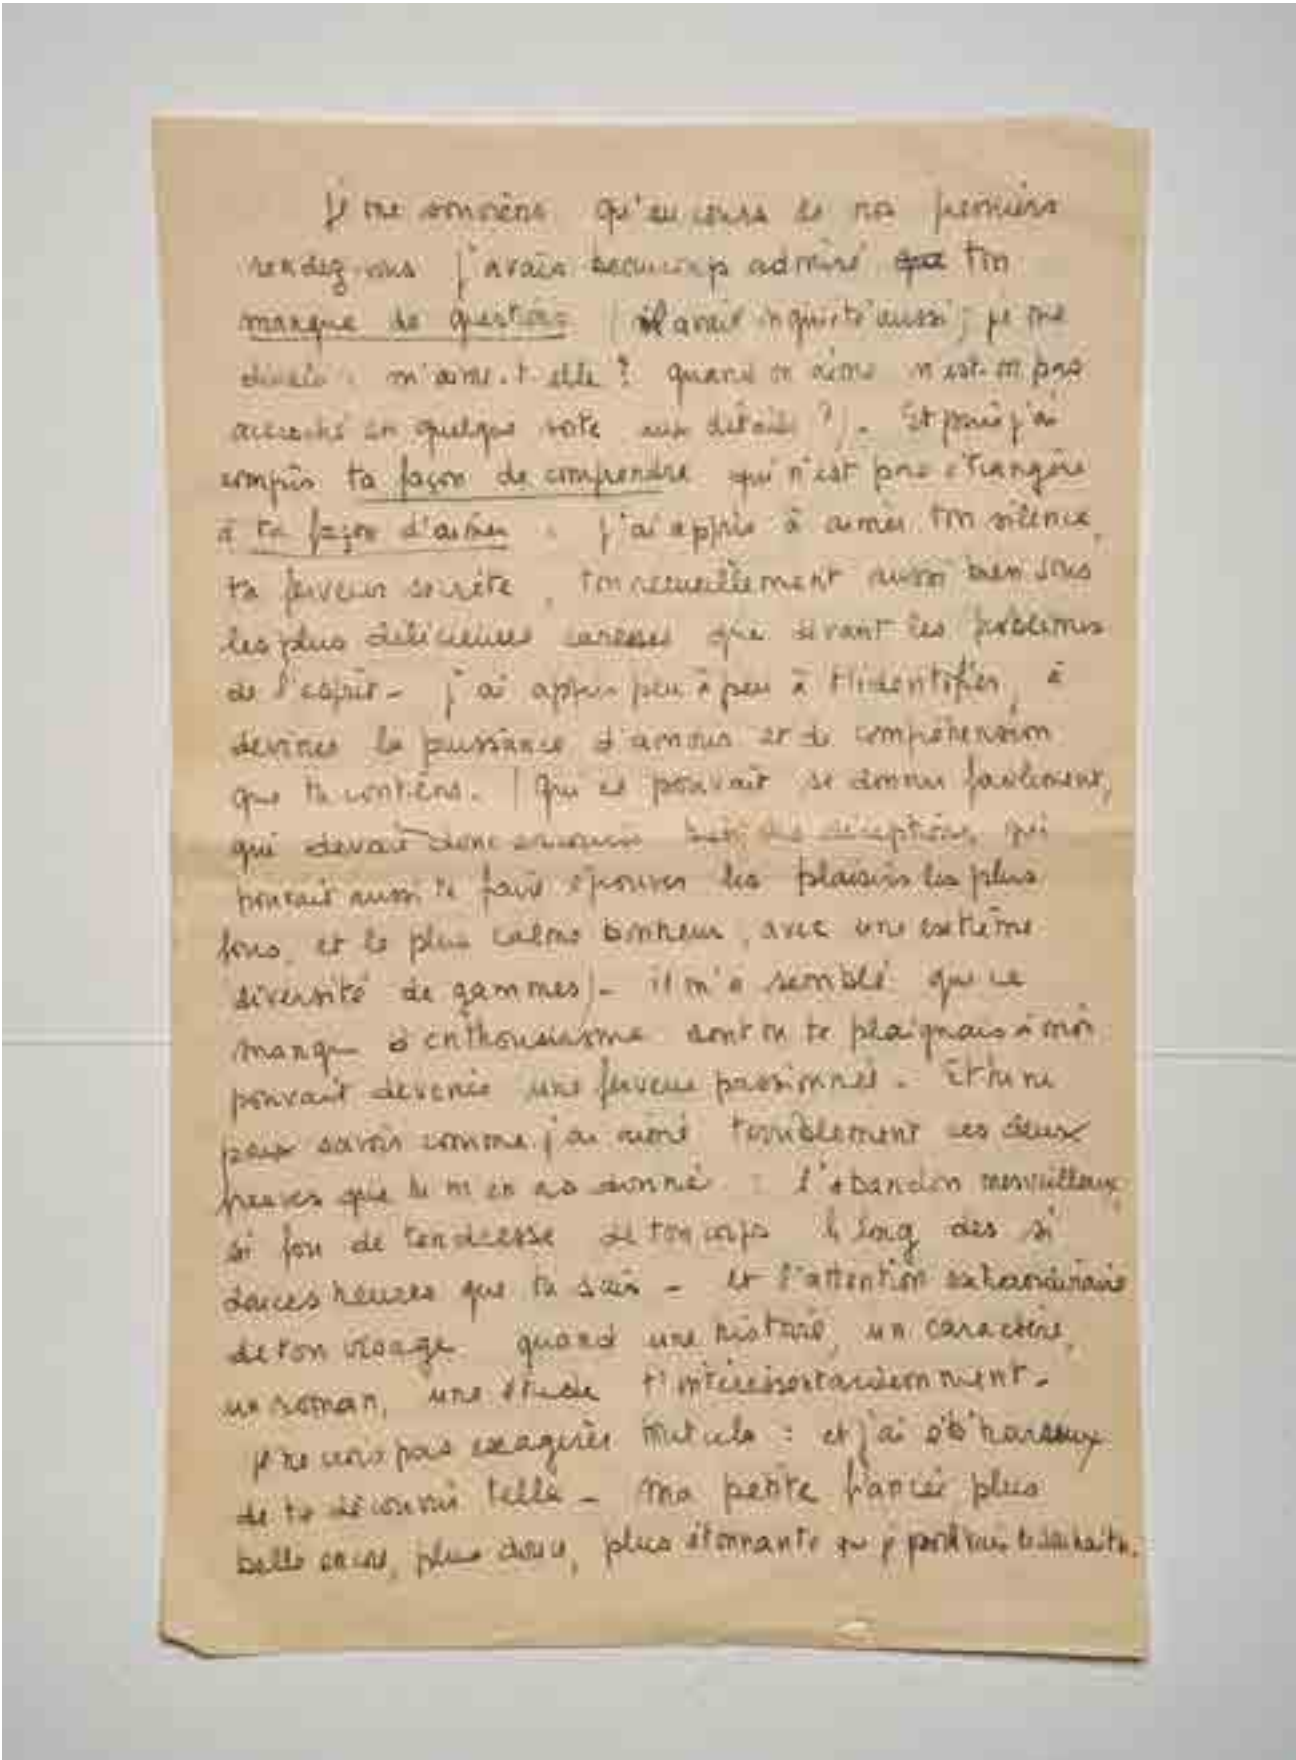 Je me souviens qu'au cours de nos premiers
rendez-vous j'avais beaucoup admiré que ton
manque de questions (il avait inquiété aussi ; je me
disais : m'aime-t-elle ? quand on aime n'est-on pas
accroché en quelque sorte aux détails ?). Et puis j'ai
compris ta façon de comprendre qui n'est pas étrangère
à ta façon d'aimer : j'ai appris à aimer ton silence,
ta ferveur secrète, ton recueillement aussi bien sous
les plus délicieuses caresses que devant les problèmes
de l'esprit - j'ai appris peu à peu à t'identifier, à
deviner la puissance d'amour et de compréhension
que tu contiens. (qui ne pouvait se donner facilement,
qui devait donc encourir bien des déceptions, qui
pouvait aussi te faire éprouver les plaisirs les plus
fous, et le plus calme bonheur, avec une extrême
diversité de gammes) - il m'a semblé que ce
manque d'enthousiasme dont tu te plaignais à moi
pouvait devenir une ferveur passionnée. Et tu ne
peux savoir comme j'ai aimé terriblement ces deux
preuves que tu m'en as donné : l'abandon merveilleux,
si fou de tendresse de ton corps le long des si
douces heures que tu sais - et l'attention extraordinaire
de ton visage quand une histoire, un caractère,
un roman, une étude t'intéressent
je ne crois pas exagérer tout cela : et j'ai été heureux
de te découvrir telle - ma petite fiancée plus
belle encore, plus douce, plus étonnante que je